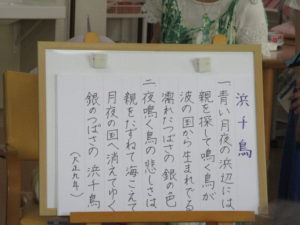 浜千鳥
一 青い月夜の浜辺には
親を探して鳴く鳥が
波の国から生まれでる
濡れたつばさの銀の色
二 夜鳴く鳥の悲しさは
親をたずねて海こえて
月夜の国へ消えてゆく
銀のつばさの浜千鳥
(大正九年)